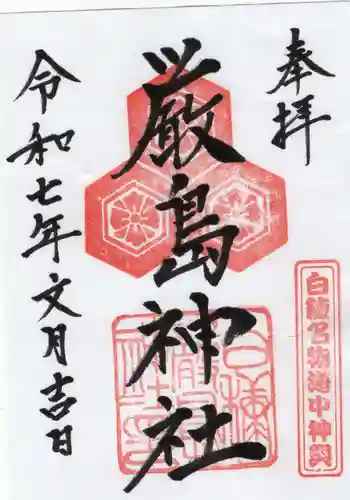 奉拝
白龍名物海中神輿
厳島神社
令和七年文月吉日